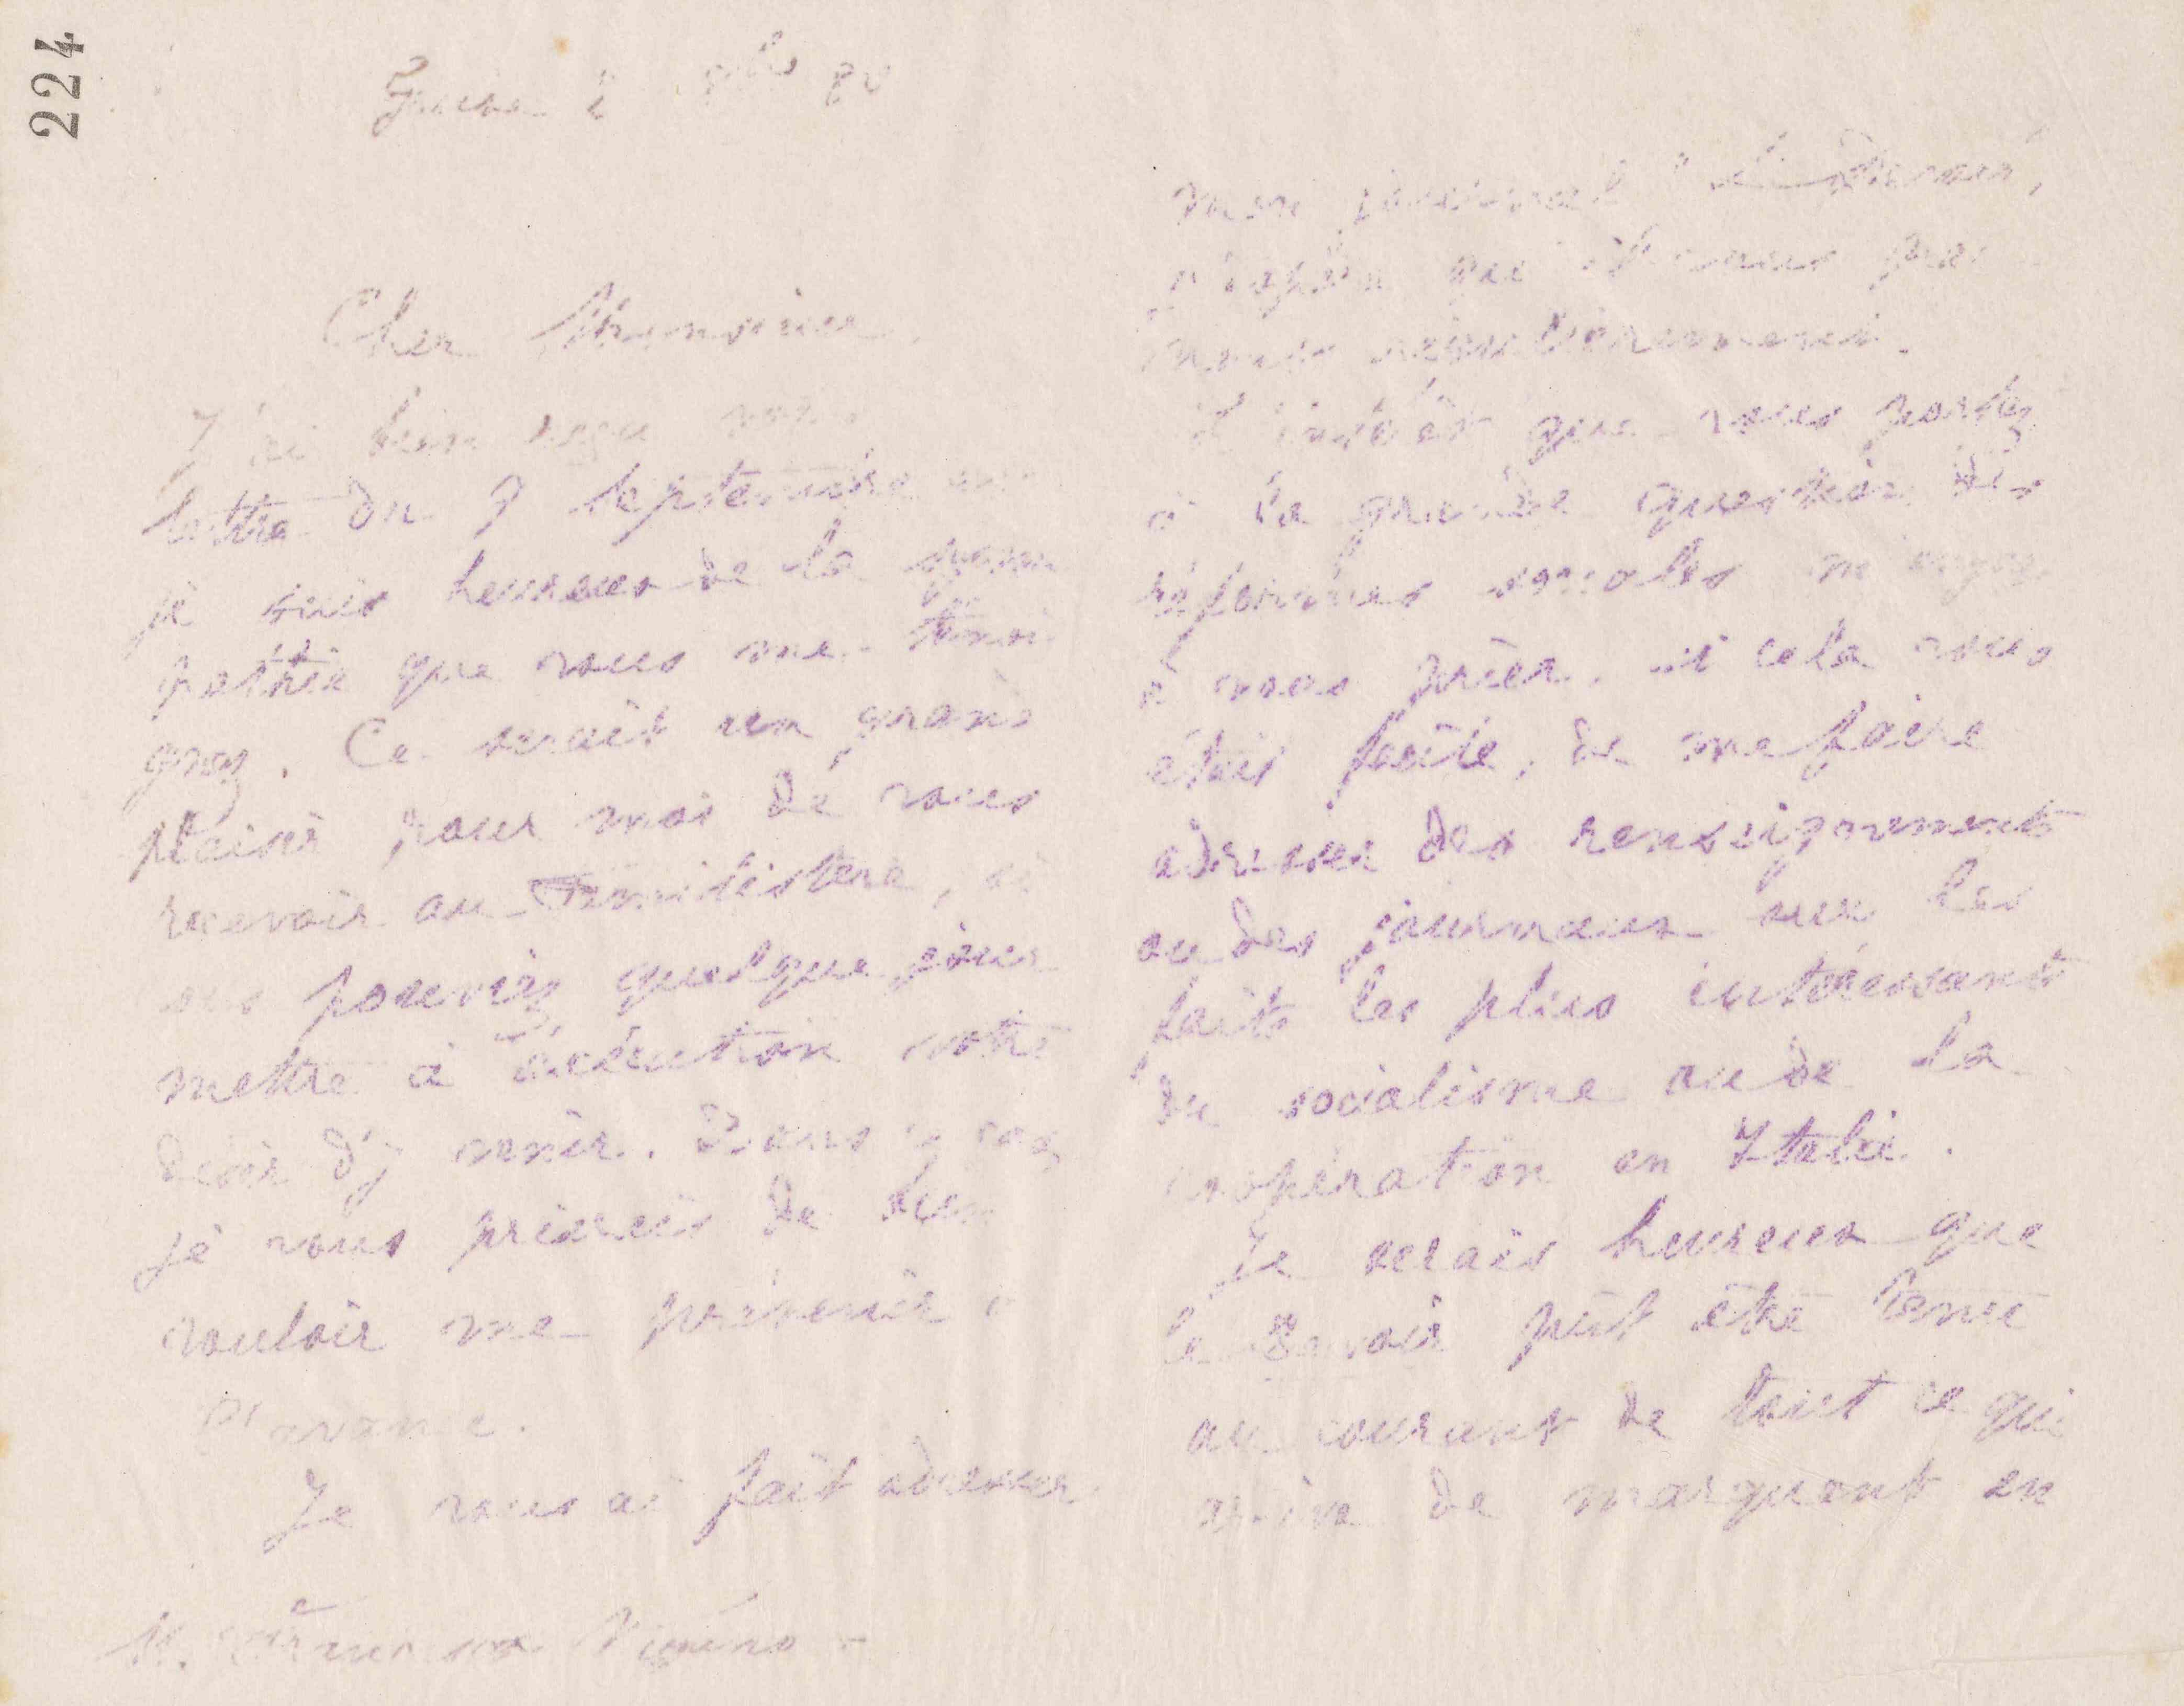 224
Cher Monsieur,
J'ai bien reçu votre
lettre du 9 septembre
je suis heureux de la sym
pathie que vous me témoi
gnez. Ce serait un grand
plaisir pour moi de vous
recevoir au Familistère, si
vous pouviez quelque jour
mettre à exécution votre
désir d'y venir. Dans ce cas,
je vous prierais de bien
vouloir me prévenir
d'avance.
Je vous ai fait adresser
M.
mon journal "Le Devoir",
j'espère que
régulièrement.
L'intérêt que vous portez
à la grande question des
réformes sociales m'engage
à vous prier, si cela vous
était facile, de me faire
adresser des renseignements
ou des journaux sur les
faits les plus intéressants
du socialisme ou de la
coopération en Italie.
Je serais heureux que
le Devoir pût être tenu
au courant de tout ce qui
arrive de marquant en